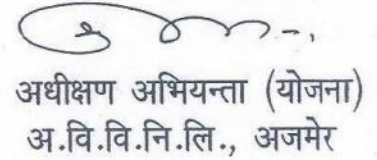 अधीक्षण अभियन्ता (योजना)
अ.वि.वि.नि.लि., अजमेर